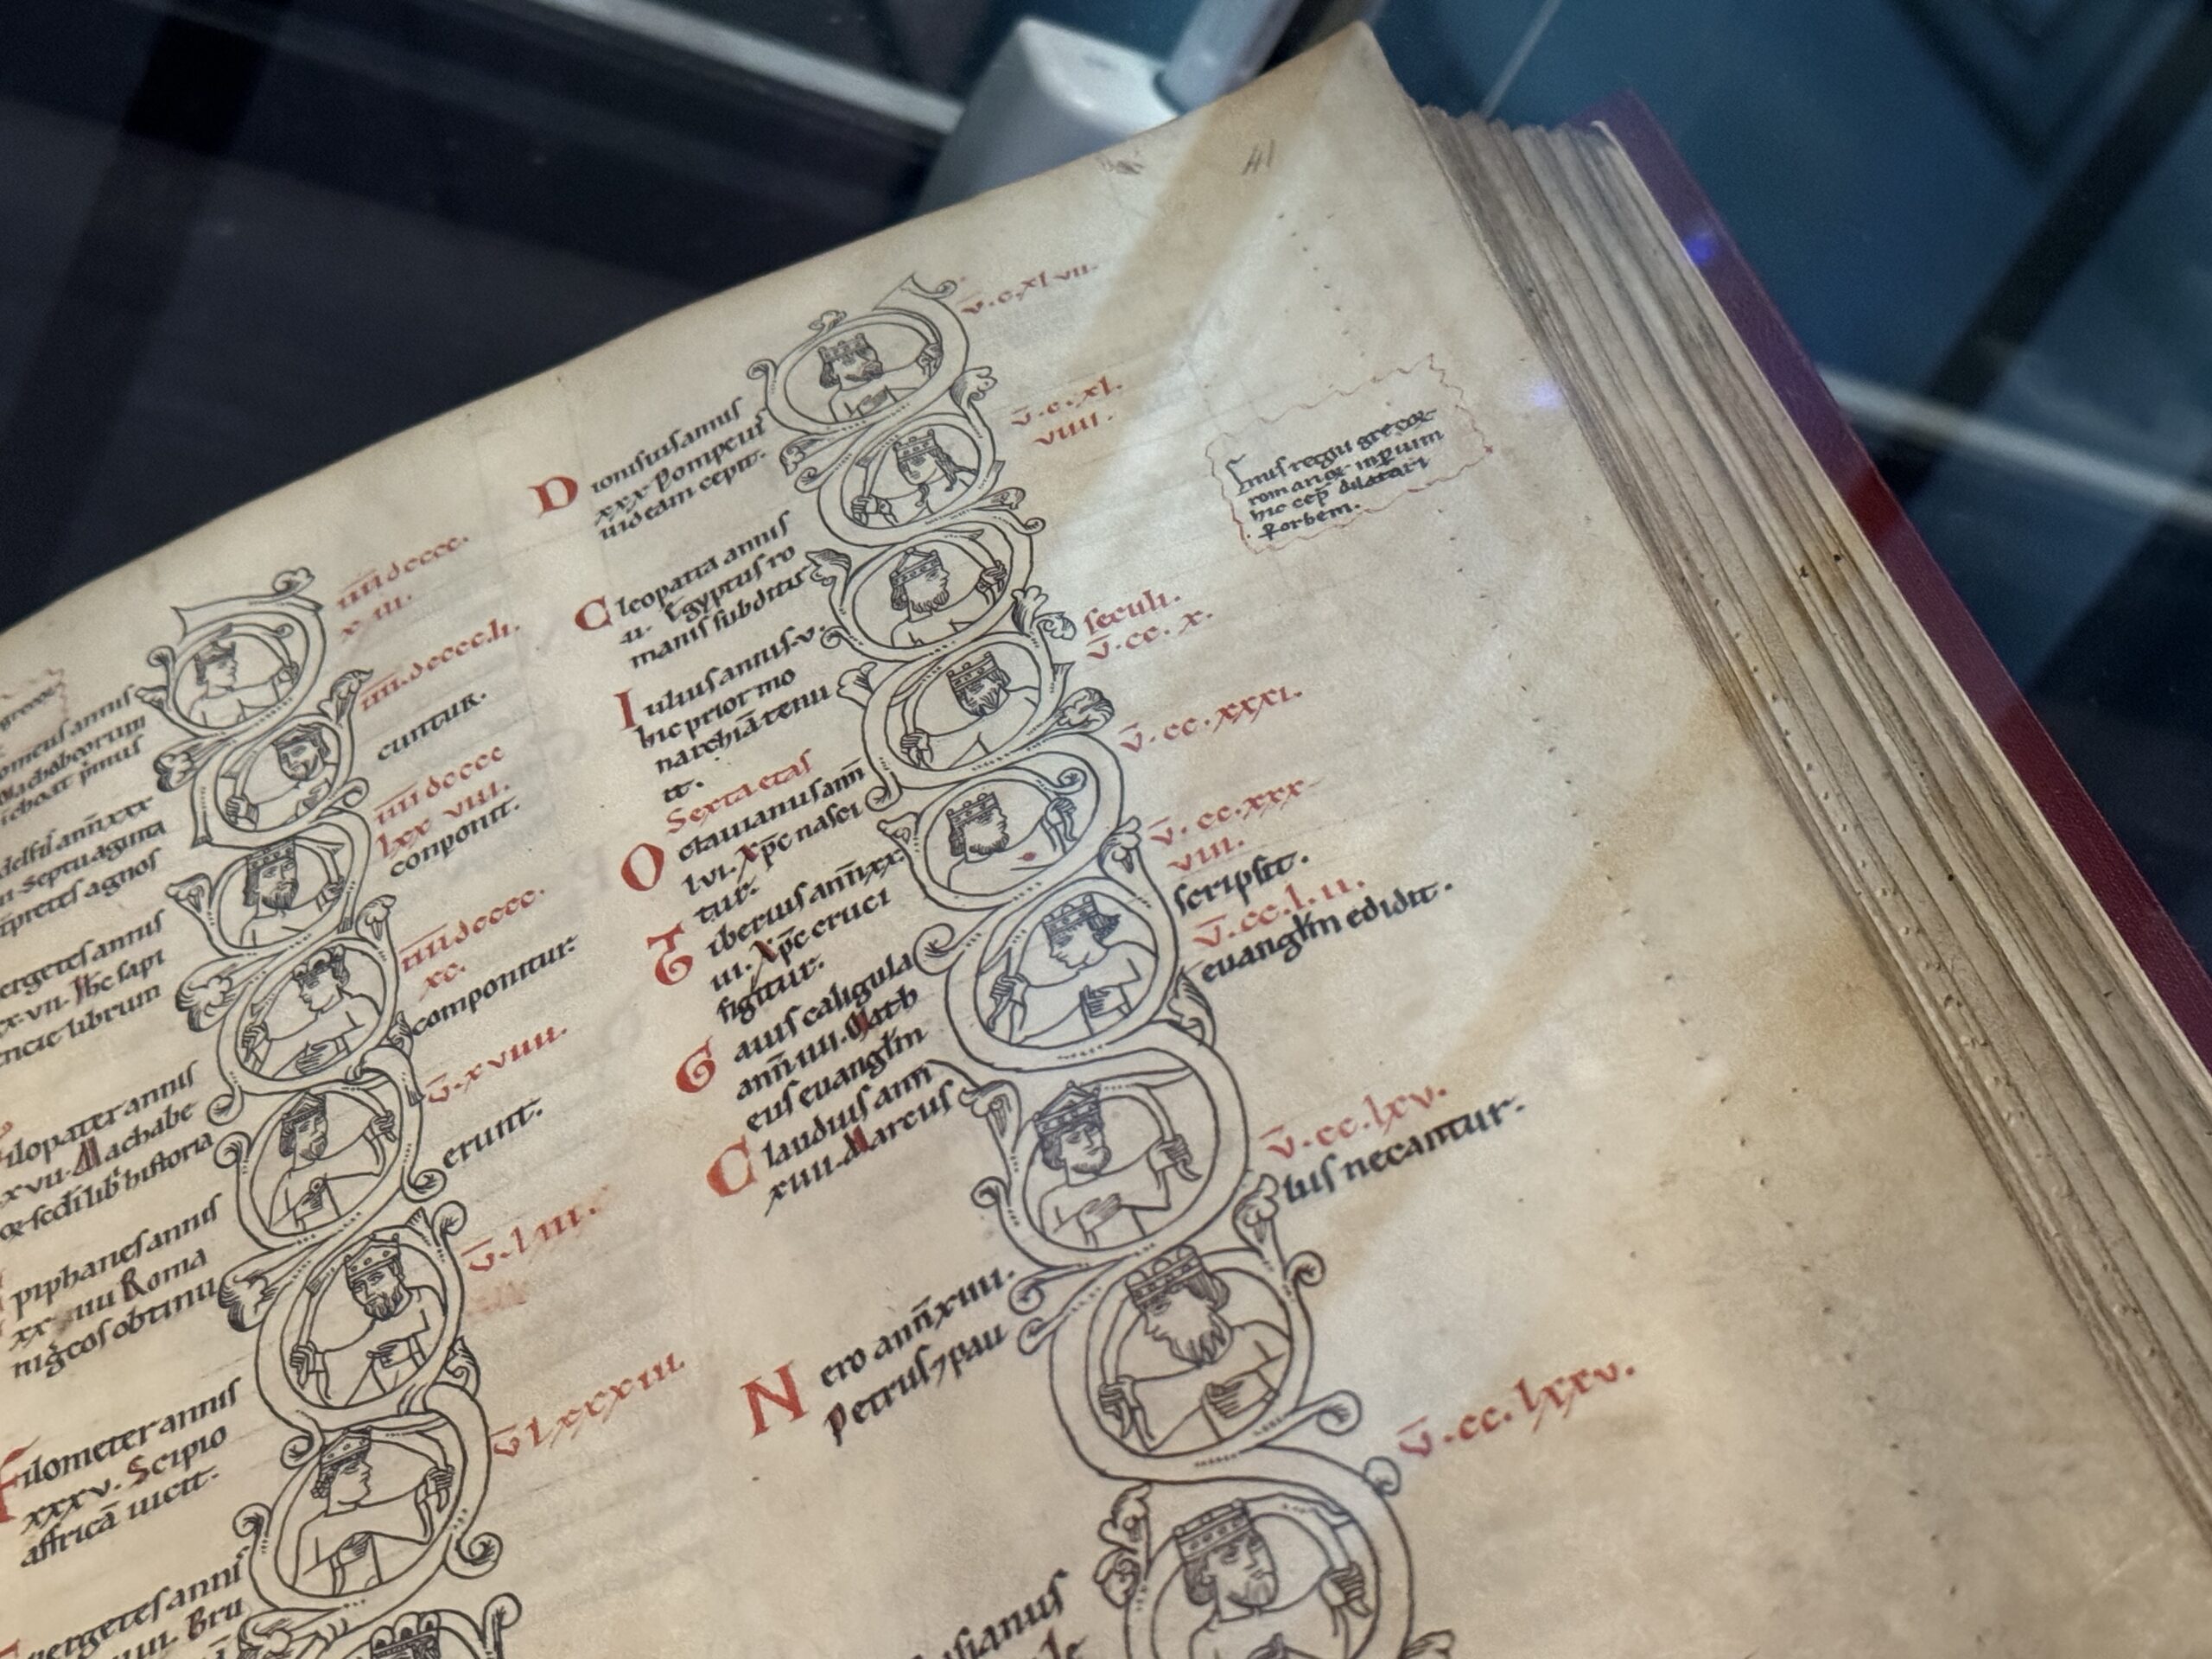 41
grecos
omeus annus
Machabeorum
icboat p̄mus
delfus ann̄ xxx
n Septuaginta
tp̄retes agnos
ergetes annus
xx vii. Jħc sapi
encie librum
ilopater annus
xvii. Machabe
oꝝ scd̄i lib̄ historia
piphanes annus
xx iiii Roma
ni g̃cos obtinu
Filometer annus
xxxv. Scipio
affricā uicit.
uergetes anni
uiii. Bru
iiii dcccc.
x iii.
iiii. dcccc. li.
cuntur.
iiii dcccc
lxx viii.
conponit.
iiii dcccc.
xc.
componitur.
v̄. xviiii.
erunt.
v̄. l iii.
v̄ lxxxiii.
Dionisius annus
xxx Pompeius
iudeam cepit.
Cleopatra annus
.ii. Egyptus ro
manis subditus
Iulius annus .v.
hic prior mo
narchiā tenu
it.
Sexta etas
Octauianus ann̄
lvi. xp̄c nasci
tur.
Tiberius ann̄ xx
iii. Xp̄c cruci
figitur.
Gaius caligula
ann̄ iiii. Math
eus euangl̄m
Claudius ann̄
xiiii. Marcus
Nero ann̄ xiiii.
Petrus ⁊ pau
sianus
v̄. c. xl vii.
v̄. c. xl.
viiii.
seculi.
v̄. cc. x.
v̄. cc. xxxi.
v̄. cc. xxx
viii.
scripsit.
v̄. cc. l. ii.
euangl̄m edidit.
v̄. cc. lxv.
lus necantur.
v̄. cc. lxxv.
Finis regni grecoꝝ
romanoꝝ inp̄ium
hic cep̄ dilatari
ꝑ orbem.